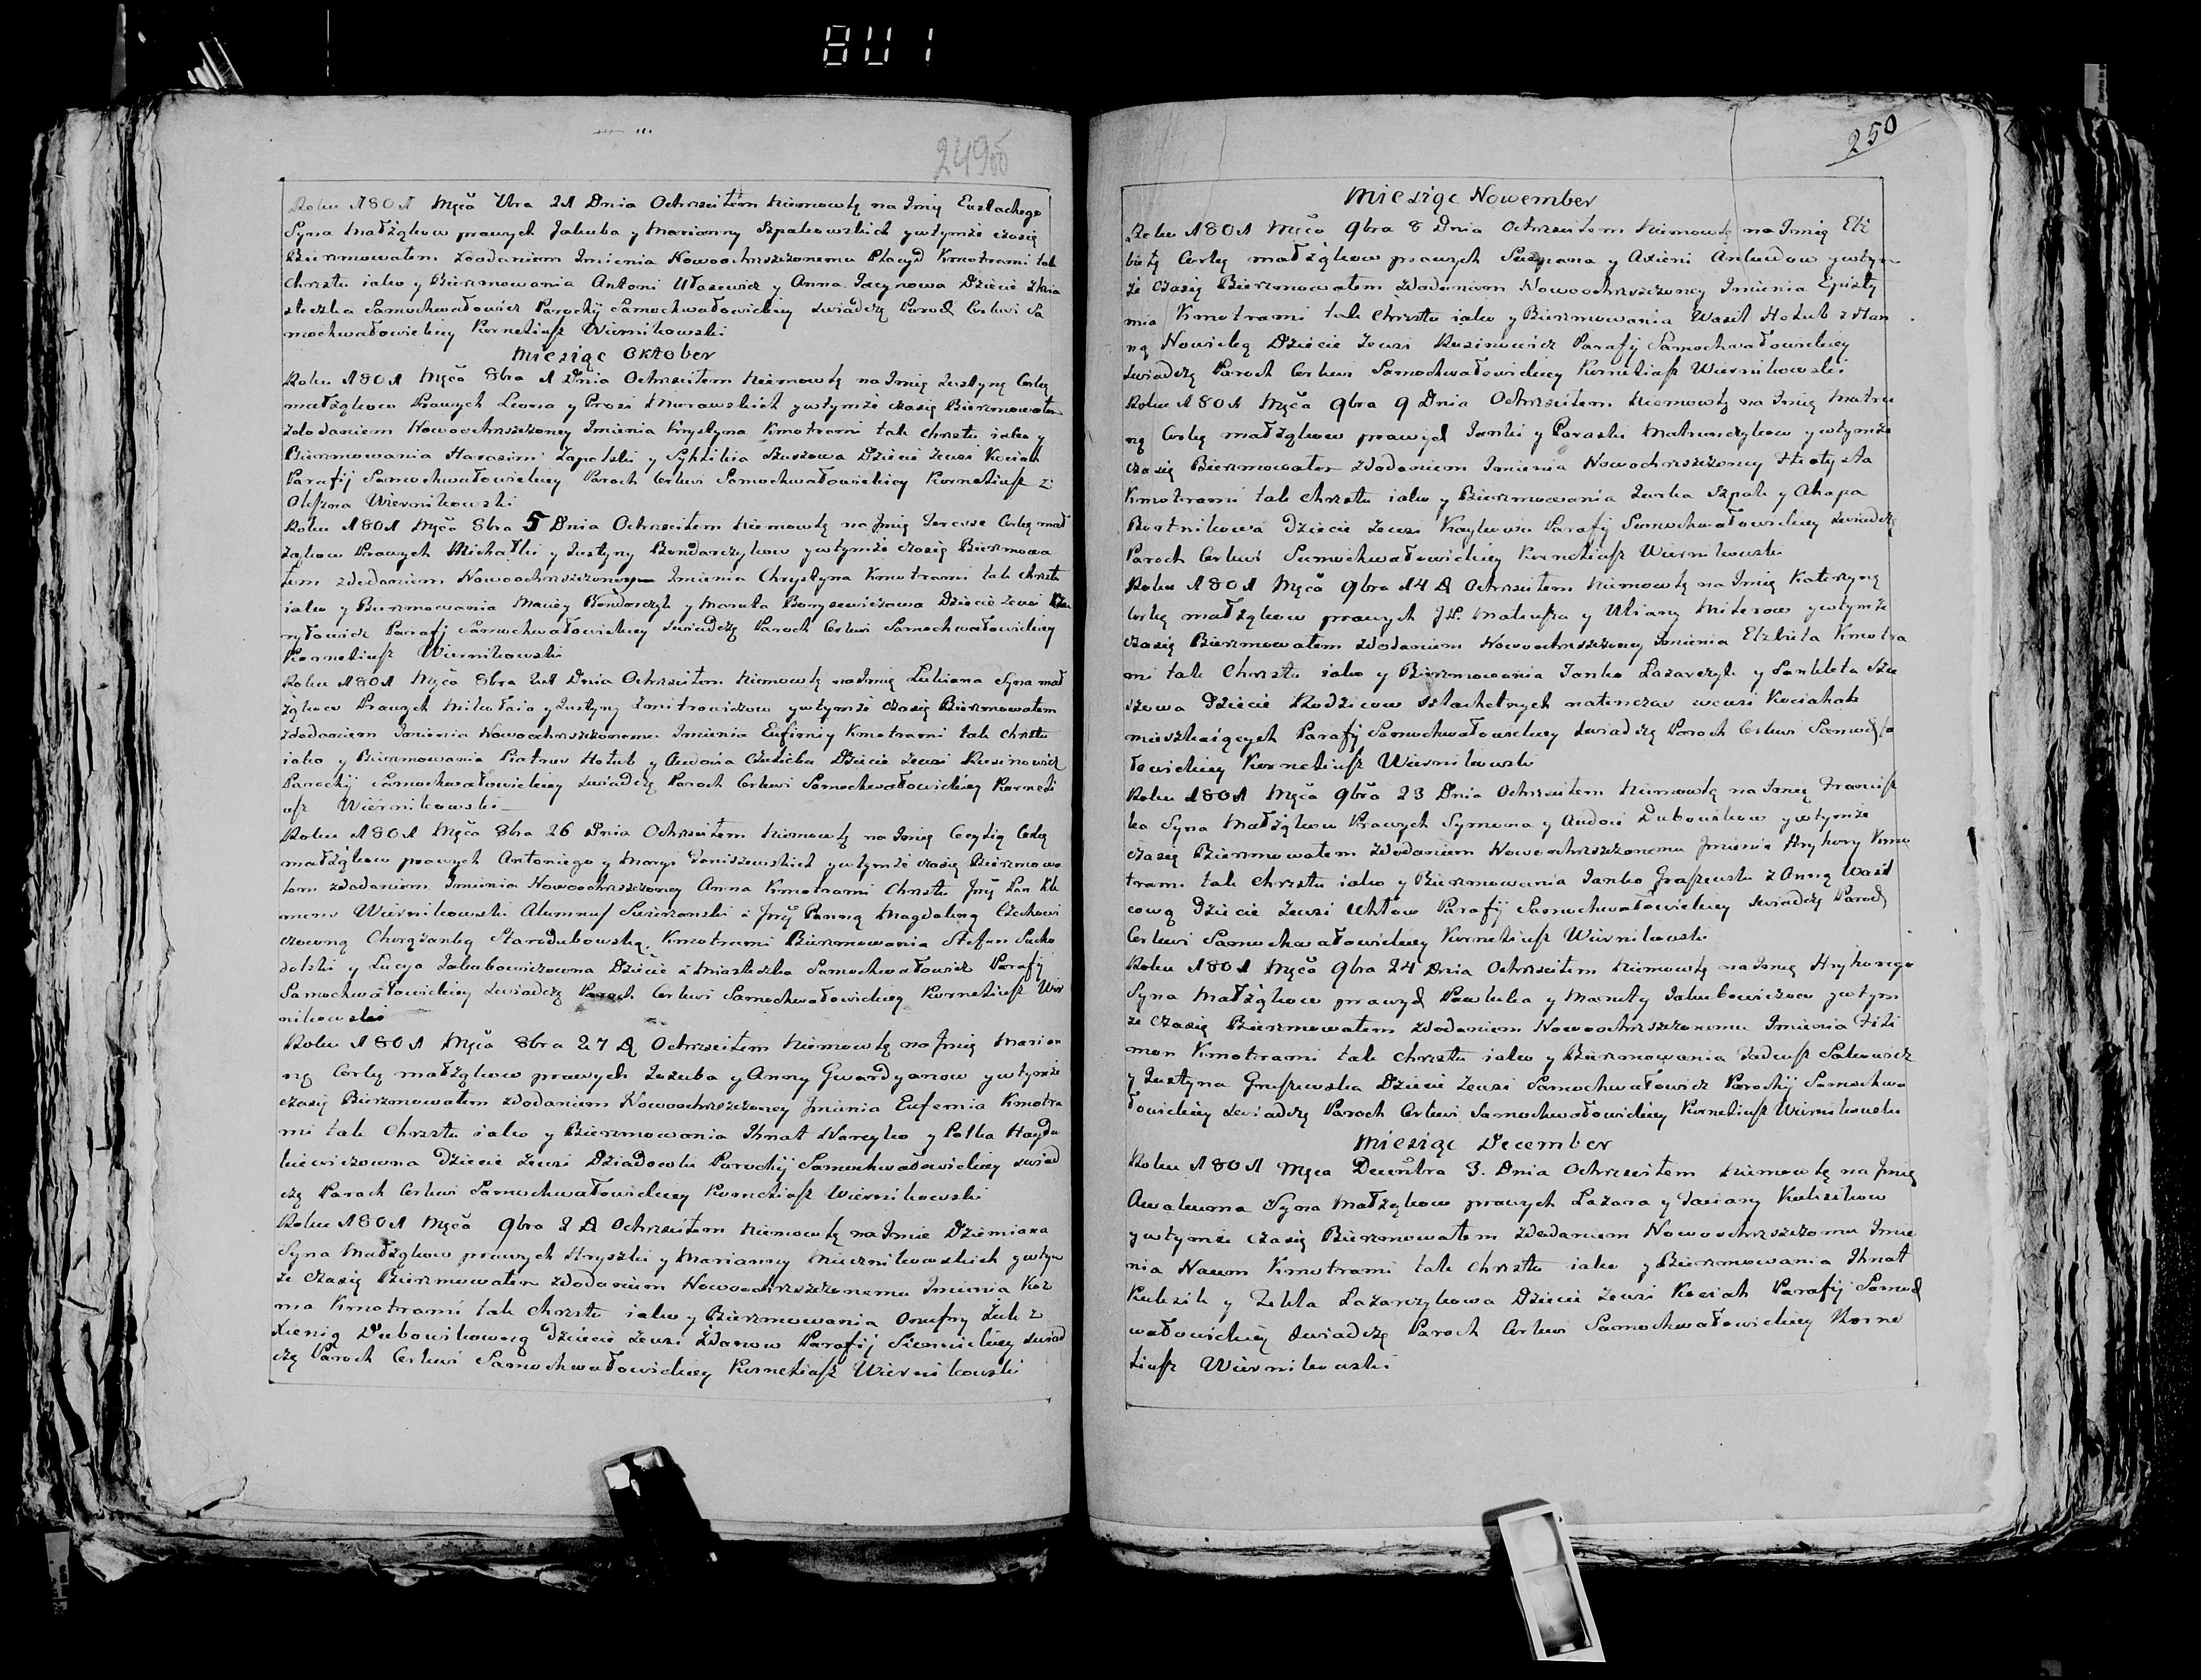 801
249об
Roku 1801 Mẹca 7bra 21 Dnia Ochrzciłem niemowlę na Imię Eustachego
Syna Małżąkow prawych Jakuba y Marianny Szpakowskich y wtymże czasię
Bierzmowałem zdodaniem Imienia Nowoochrzszczonemu Placyd Kmotrami tak
chrztu iako y Bierzmowania Antoni Ułasewicz y Anna Jacynowa Dziecie zMia
steczka Samochwałowicz Parochij Samochwałowickiey swiadczę Paroch Cerkwi Sa
mochwałowickiey Korneliusz Wiernikowski
Miesiąc Oktober
Roku 1801 Męca 8bra 1 Dnia Ochrzciłem niemowlę na Imię Justynę Corkę
małżąkow Prawych Leona y Prosi Murawskich y wtymże czasię Bierzmowałem
zdodaniem Nowoochrzszczoney Imienia Krystyna Kmotrami tak chrztu iako y
Bierzmowania Harasim Zapolski y Dziecie zewsi Kociah
Parafij Samochwałowickiey Paroch Cerkwi Samochwałowickiey Korneliusz z
Wiernikowski
Roku 1801 Męca 8bra 5 Dnia Ochrzciłem niemowlę na Imię Corkę mał
żąkow Prawych Michałki y Justyny Bondarczykow y wtymże czasię Bierzmowa
łem zdodaniem Nowoochrzszczoney Imienia Chrystyna Kmotrami tak chrztu
iako y Bierzmowania Maciey Bondarczyk y Maruta Borysewiczowa Dziecie zewsi
ryłowicz Parafij Samochwałowickiey swiadczę Paroch Cerkwi Samochwałowickiey
Korneliusz Wiernikowski
Roku 1801 Męca 8bra 21 Dnia Ochrzciłem niemowlę na Imię Lukiana Syna mał
żąkow Prawych Mikołaia y Justyny Zmitrowiczow y wtymże czasię Bierzmowałem
zdodaniem Imienia Nowoochrzszczonemu Imienia Eufimiy Kmotrami tak chrztu
iako y Bierzmowania Piotrus Hołub y Audocia Dziecie zewsi Rusinowicz
Parochij Samochwałowickiey swiadczę Paroch Cerkwi Samochwałowickiey Korneli
usz Wiernikowski
Roku 1801 Męca 8bra 26 Dnia Ochrzciłem niemowlę na Imię Cecylię Corkę
małżąkow prawych Antoniego y Maryi Janiszewskich y wtymże czasię Bierzmowa
łem zdodaniem Imienia Nowoochrzszczoney Anna Kmotrami Chrztu Jmę Pan Kle
mens Wiernikowski Alumnus Swierzanski z Jmę Panną Magdaleną Czechowi
czowną Chorążanką Starodubowską. Kmotrami Bierzmowania Stefan Sucho
dolski y Lucya Jakubowiczowna Dziecie z Miasteczka Samochwałowicz Parafij
Samochwałowickiey swiadczę Paroch Cerkwi Samochwałowickiey Korneliusz Wier
nikowski
Roku 1801 Męca 8bra 27 D Ochrzciłem niemowlę na Imię Marian
nę Corkę małżąkow prawych Jakuba y Anny Gwardyanow y wtymże
czasię Bierzmowałem zdodaniem Nowoochrzszczoney Imienia Eufemia Kmotra
mi tak Chrztu iako y Bierzmowania Ihnat Narcyko y Połka Haydu
kiewiczowna Dziecie zewsi Dziadowki Parochij Samochwałowickiey swiad
czę Paroch Cerkwi Samochwałowickiey Korneliusz Wiernikowski
Roku 1801 Męca 9bra 2 D Ochrzciłem niemowlę na Imie Dziemiana
Syna Małżąkow prawych Hryszki y Marianny Miecznikowskich y wtym
że czasię Bierzmowałem zdodaniem Nowoochrzszczonemu Imienia Koz
ma Kmotrami tak chrztu iako y Bierzmowania Onufry Żuk z
Xienią Dubowikowną Dziecie zewsi Żdanow Parafij Siemickiey swiad
czę Paroch Cerkwi Samochwałowickiey Korneliusz Wiernikowski
250
Miesiąc Nowember
Roku 1801 Męca 9bra 8 Dnia Ochrzciłem niemowlę na Imię Elż
bietę Corkę małżąkow prawych Sciepana y Axieni y wtym
że czasię Bierzmowałem zdodaniem Nowoochrzszczoney Imienia Episty
mia Kmotrami tak Chrztu iako y Bierzmowania Wasil Hołub z Han
ną Nowicką Dziecie zewsi Rusinowicz Parafij Samochwałowickiey
swiadczę Paroch Cerkwi Samochwałowickiey Korneliusz Wiernikowski
Roku 1801 Męca 9bra 9 Dnia Ochrzciłem niemowlę na Imię Matru
nę Corkę małżąkow prawych Janki y Paraski y wtymże
czasię Bierzmowałem zdodaniem Imienia Nowoochrzszczoney
Kmotrami tak chrztu iako y Bierzmowania Jurka Szpak y Ahapa
Bortnikowa Dziecie zewsi Kaykowa Parafij Samochwałowickiey swiadczę
Paroch Cerkwi Samochwałowickiey Korneliusz Wiernikowski
Roku 1801 Męca 9bra 14 D Ochrzciłem niemowlę na Imię Katerzynę
Corkę małżąkow prawych JP. Mateusza y Uliany Milerow y wtymże
czasię Bierzmowałem zdodaniem Nowoochrzszczoney Imienia Elżbieta Kmotra
mi tak Chrztu iako y Bierzmowania Janko Łazarczyk y Pankleta Szu
szowa Dziecie Rodzicow szlachetnych natenczas wewsi Kociahah
mieszkaiących Parafij Samochwałowickiey swiadczę Paroch Cerkwi Samochwa
łowickiey Korneliusz Wiernikowski
Roku 1801 Męca 9bra 23 Dnia Ochrzciłem niemowlę na Imię Francisz
ka Syna Małżąkow Prawych Symona y Audoci Dubowikow y wtymże
czasię Bierzmowałem zdodaniem Nowoochrzszczonemu Imienia Hryhory Kmo
trami tak chrztu iako y Bierzmowania Janko z Anną Wasil
cową Dziecie zewsi Uhłow Parafij Samochwałowickiey swiadczę Paroch
Cerkwi Samochwałowickiey Korneliusz Wiernikowski
Roku 1801 Męca 9bra 24 Dnia Ochrzciłem niemowlę na Imię Hryhorego
Syna Małżąkow prawych Pawluka y Maruty Jakubowiczow y wtym
że czasię Bierzmowałem zdodaniem Nowoochrzszczonemu Imienia Fili
mon Kmotrami tak chrztu iako y Bierzmowania Tadeusz Sakowicz
y Justyna Gruszewska Dziecie zewsi Samochwałowicz Parochij Samochwa
łowickiey swiadczę Paroch Cerkwi Samochwałowickiey Korneliusz Wiernikowski
Miesiąc December
Roku 1801 Męca Decembra 3. Dnia Ochrzciłem niemowlę na Imię
Awakuma Syna Małżąkow prawych Łazara y Taciany Kulzikow
y wtymże czasię Bierzmowałem zdodaniem Nowoochrzszczomu Imie
nia Naum Kmotrami tak chrztu iako y Bierzmowania Ihnat
Kulzik y Tekla Łazarczykowa Dziecie zewsi Kociah Parafij Samoch
wałowickiey swiadczę Paroch Cerkwi Samochwałowickiey Korne
liusz Wiernikowski